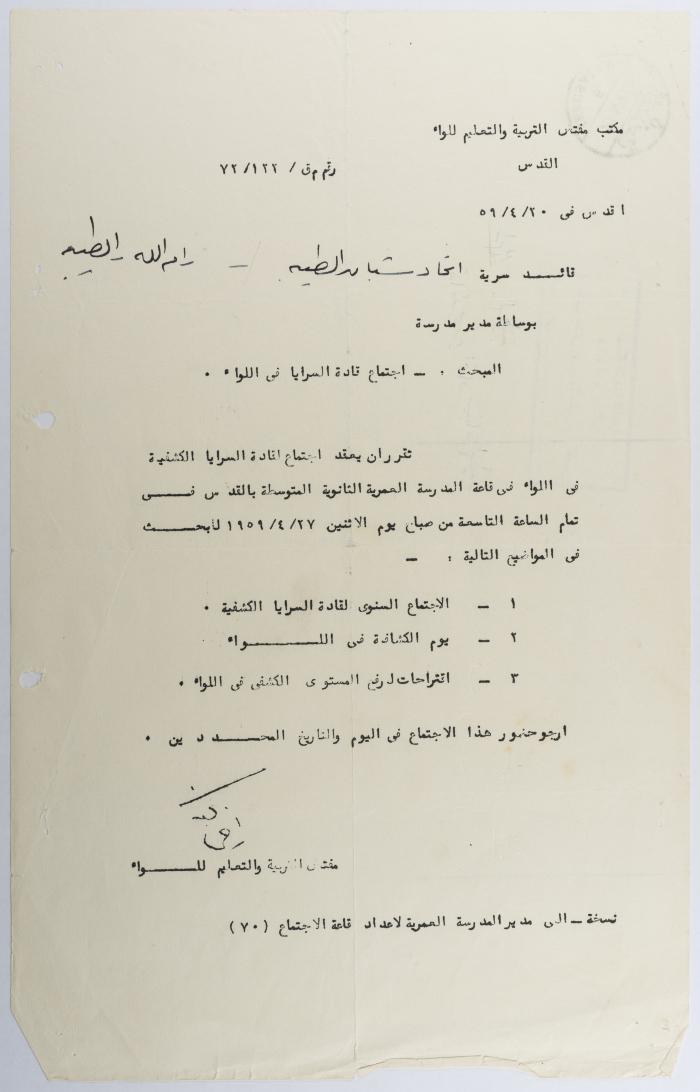 مكتب مفتش التربية والتعليم للواء
القدس
رقم م ق / ١٢٢/ ٧٢
القدس فى ٢٠/ ٤/ ٥٩
قائــــد سرية اتحاد شبان الطيبه – رام الله الطيبه
بوساطة مدير مدرسة
المبحث : – اجتماع قادة السرايا فى اللواء .
تقرر ان يعقد اجتماع لقادة السرايا الكشفية
فى اللواء فى قاعة المدرسة العمرية الثانوية المتوسطة بالقدس فــــى
تمام الساعة التاسعة من صباح يوم الاثنين ٢٧/ ٤/ ١٩٥٩ لبحـــث
فى المواضيع التالية : –
١ – الاجتماع السنوى لقادة السرايا الكشفية .
٢ – يوم الكشافة فى اللـــــــواء
٣ – اقتراحات لرفع المستوى الكشفى فى اللواء .
ارجو حضور هذا الاجتماع فى اليوم والتاريخ المحـــددين .
مفتش التربية والتعليم للـــــواء
نسخة – الى مدير المدرسة العمرية لاعداد قاعة الاجتماع (٧٠)